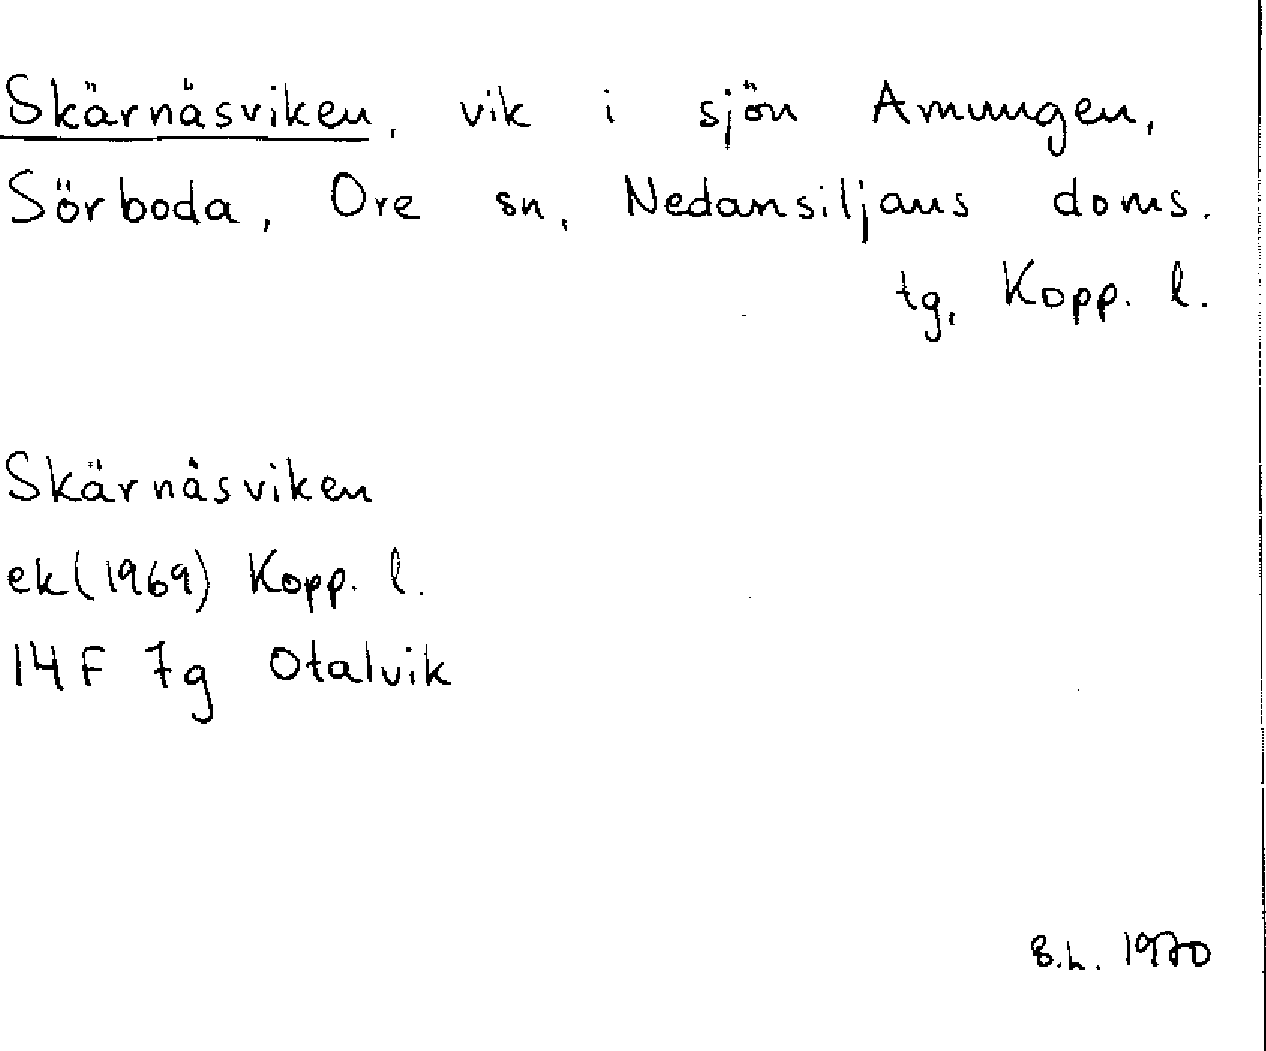 Skärnäsviken, vik i sjön Amungen,
Sörboda, Ore sn, Nedansiljans doms.
tg, Kopp. l.
Skärnäsviken
ek (1969) Kopp. l.
14F 7g Otalvik
B.L. 1970